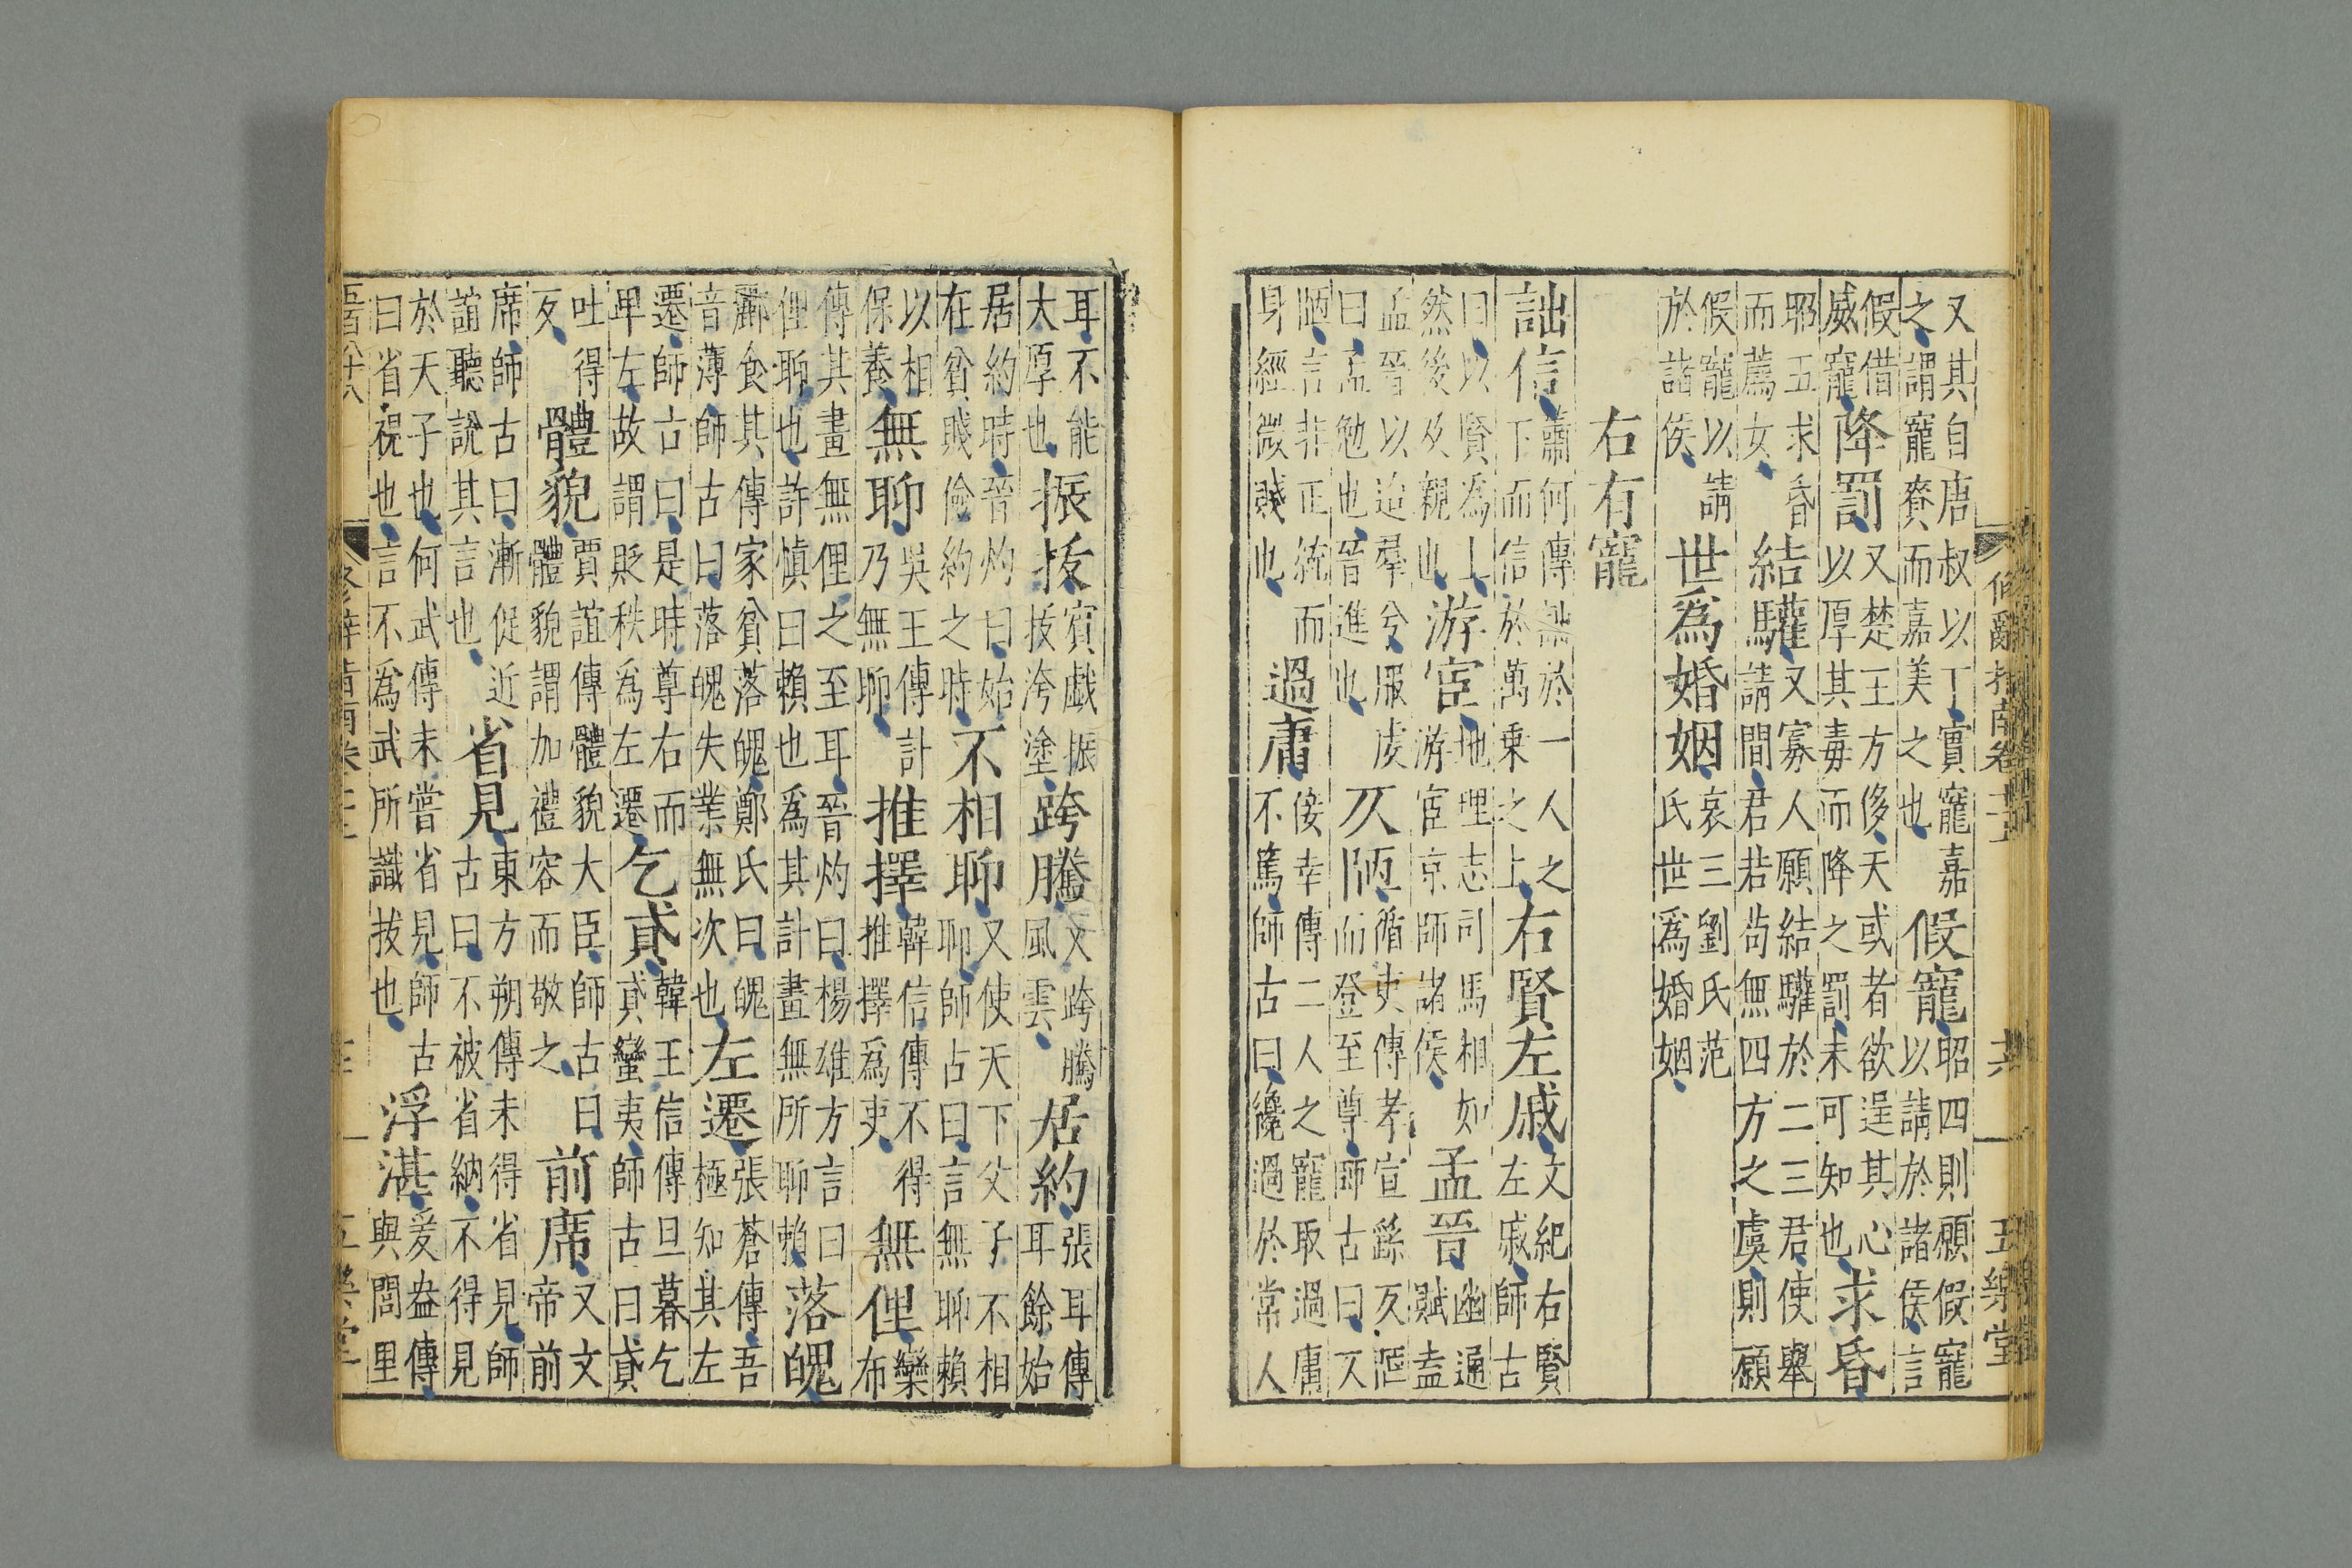 脩辭指南卷十五 五樂堂
又其自唐叔以丁實寵嘉之謂寵賚而嘉美之也假寵昭四則願假寵以請於諸侯言
假借威寵降罰又楚王方侈天或者欲逞其心以厚其毒而降之罰未可知也求昏
耶五求昏而薦女結驩又寡人願結驩於二三君使舉請間君若苟無四方之虞則願
假寵以請於諸侯世爲婚姻哀三劉氏范氏世爲婚姻
右有寵
詘信蕭何傳詘於一人之下而信於萬乗之上右賢左戚文紀右賢左戚師古
曰以賢為上然後及親也游宦地理志司馬相如游宦京師諸侯孟晉幽通賦盍
孟晉以迨羣兮服虔曰孟勉也晉進也仄陋循吏傳孝宣繇仄陋而登至尊師古曰仄
陋言非正統而身經微賤也過庸佞幸傳二人之寵取過庸不篤師古曰纔過於常人
耳不能大厚也振拔賓戯振拔洿塗跨騰又跨騰風雲居約張耳傳耳餘始
居約時晉灼曰始在貧賤儉約之時不相聊又使天下父子不相聊師古曰言無聊賴
以相保養無聊吳王傳計乃無聊推擇韓信傳不得推擇爲吏無俚欒布
傳其畫無俚之至耳晉灼曰楊雄方言曰俚聊也許慎曰賴也爲其計畫無所聊賴落魄
酈食其傳家貧落魄鄭氏曰魄音薄師古曰落魄失業無次也左遷張蒼傳吾極知其左
遷師古曰是時尊右而卑左故謂貶秩爲左遷乞貣韓王信傳旦暮乞貣蠻夷師古曰貣
吐得反體貌賈誼傳體貌大臣師古曰體貌謂加禮容而敬之前席又文帝前
席師古曰漸促近誼聽說其言也省見東方朔傳未得省見師古曰不被省納不得見
於天子也何武傳未嘗省見師古曰省視也言不爲武所識拔也浮湛爰盎傳與閭里